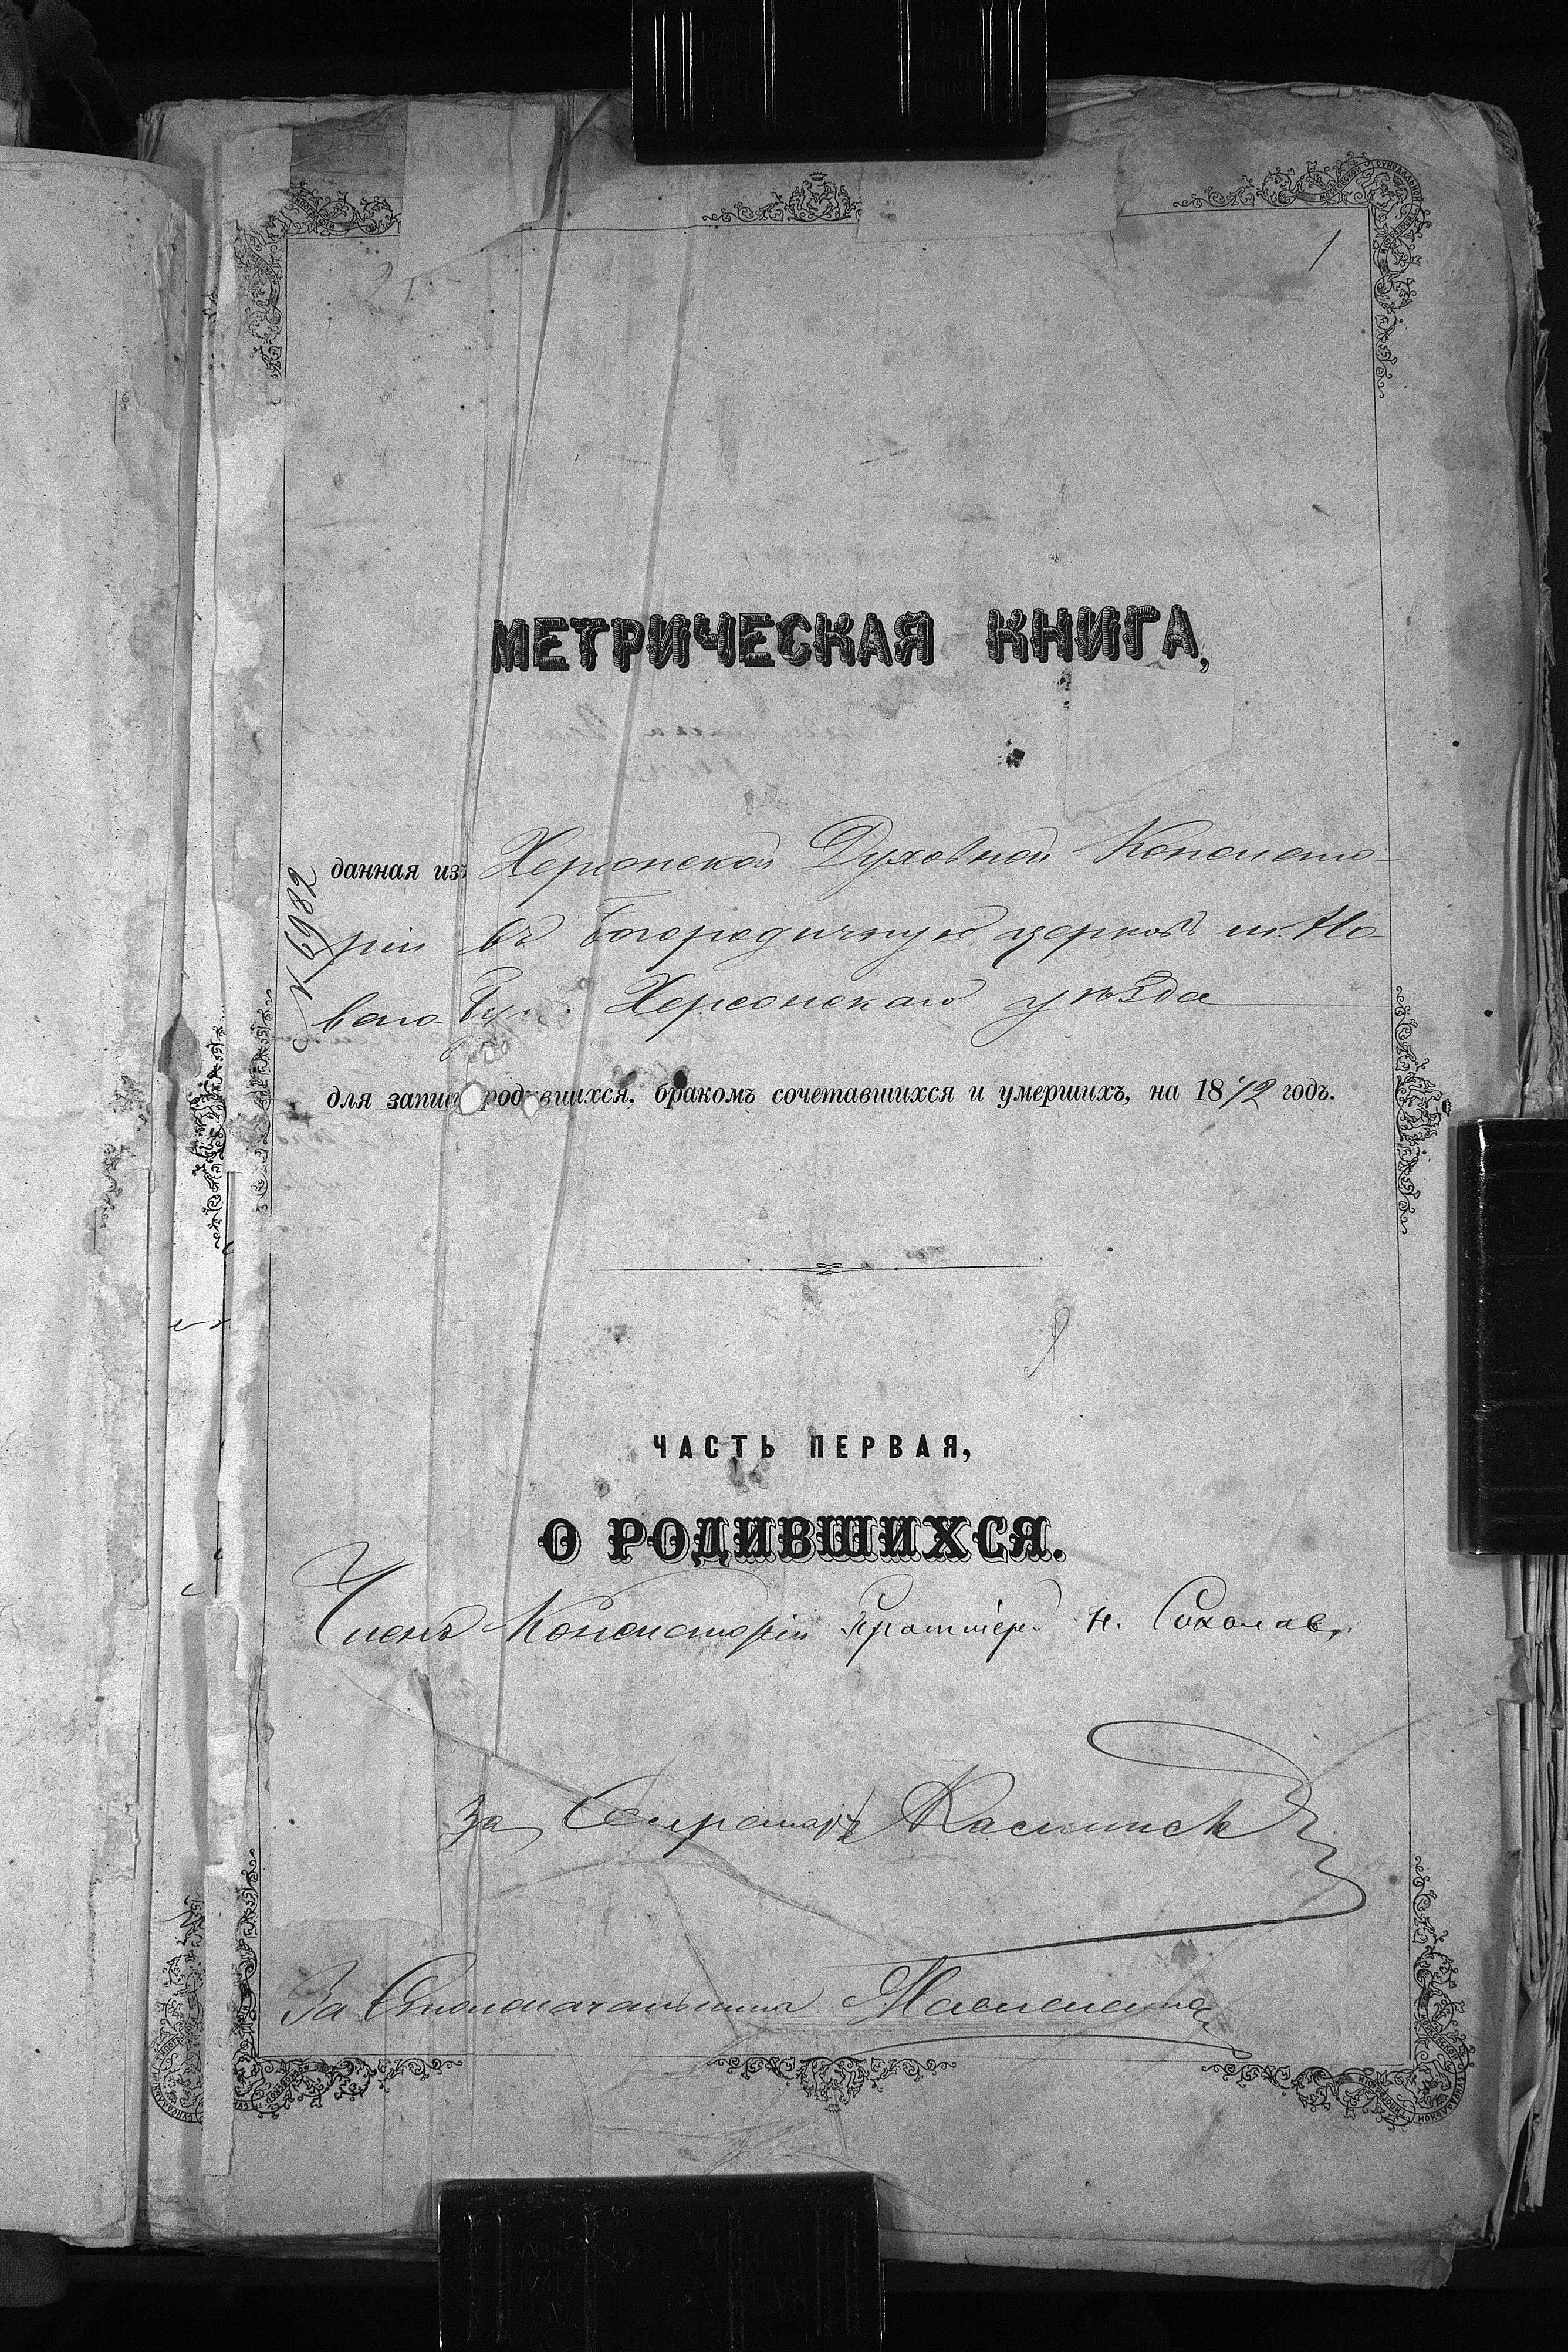 1
МЕТРИЧЕСКАЯ КНИГА,
данная изъ Херсонской Духовной Консисто-
ріи въ Богородичную церковь м. Но-
ваго Буга Херсонскаго уѣзда
№ 6982
для записи родившихся, бракомъ сочетавшихся и умершихъ, на 1872 годъ.
ЧАСТЬ ПЕРВАЯ,
О РОДИВШИХСЯ.
Членъ Консисторіи Протоіер. Н. Соколовъ
За Секретаря
За Столоначальника